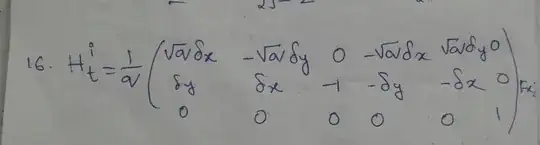 16. H_t^i = 1/q ( √q δx -√q δy 0 -√q δx √q δy 0
δy δx -1 -δy -δx 0
0 0 0 0 0 1 )